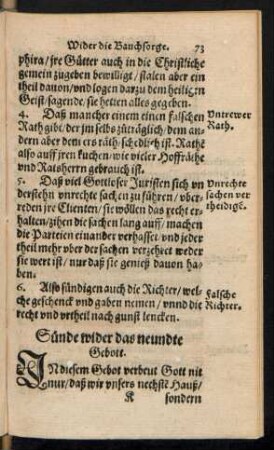 Wider die Bauchsorge. 73
phira/ jre Gütter auch in die Christliche
gemein zugeben bewilligt/ stalen aber ein
theil dauon/ vnd logen darzu dem heiligen
Geist/ sagende/ sie hetten alles gegeben.
4. Daß mancher einem einen falschen
Rath gibt/ der jm selbs zuträglich/ dem an-
dern aber dem ers räth schedlich ist. Raths
also auff jren kuchen/ wie vieler Hoffräthe
vnd Ratsherrn gebrauch ist.
Vntrewer
Rath.
5. Daß viel Gottloser Juristen sich vn
derstehn vnrechte sachen zu führen/ vber-
reden jre Clienten/ sie wöllen das recht er-
halten/ zihen die sachen lang auff/ machen
die Parteien einander verhasset/ vnd jeder
theil mehr vber der sachen verzehret weder
sie wert ist/ nur daß sie genieß dauon ha-
ben.
Vnrechte
sachen ver
theidigē.
6. Also sündigen auch die Richter/ wel-
che geschenck vnd gaben nemen/ vnnd die
recht vnd vrtheil nach gunst lencken.
Falsche
Richter.
Sünde wider das neundte
Gebott.
IN diesem Gebot verbeut Gott nit
nur/ daß wir vnsers nechstē Hauß/
K sondern